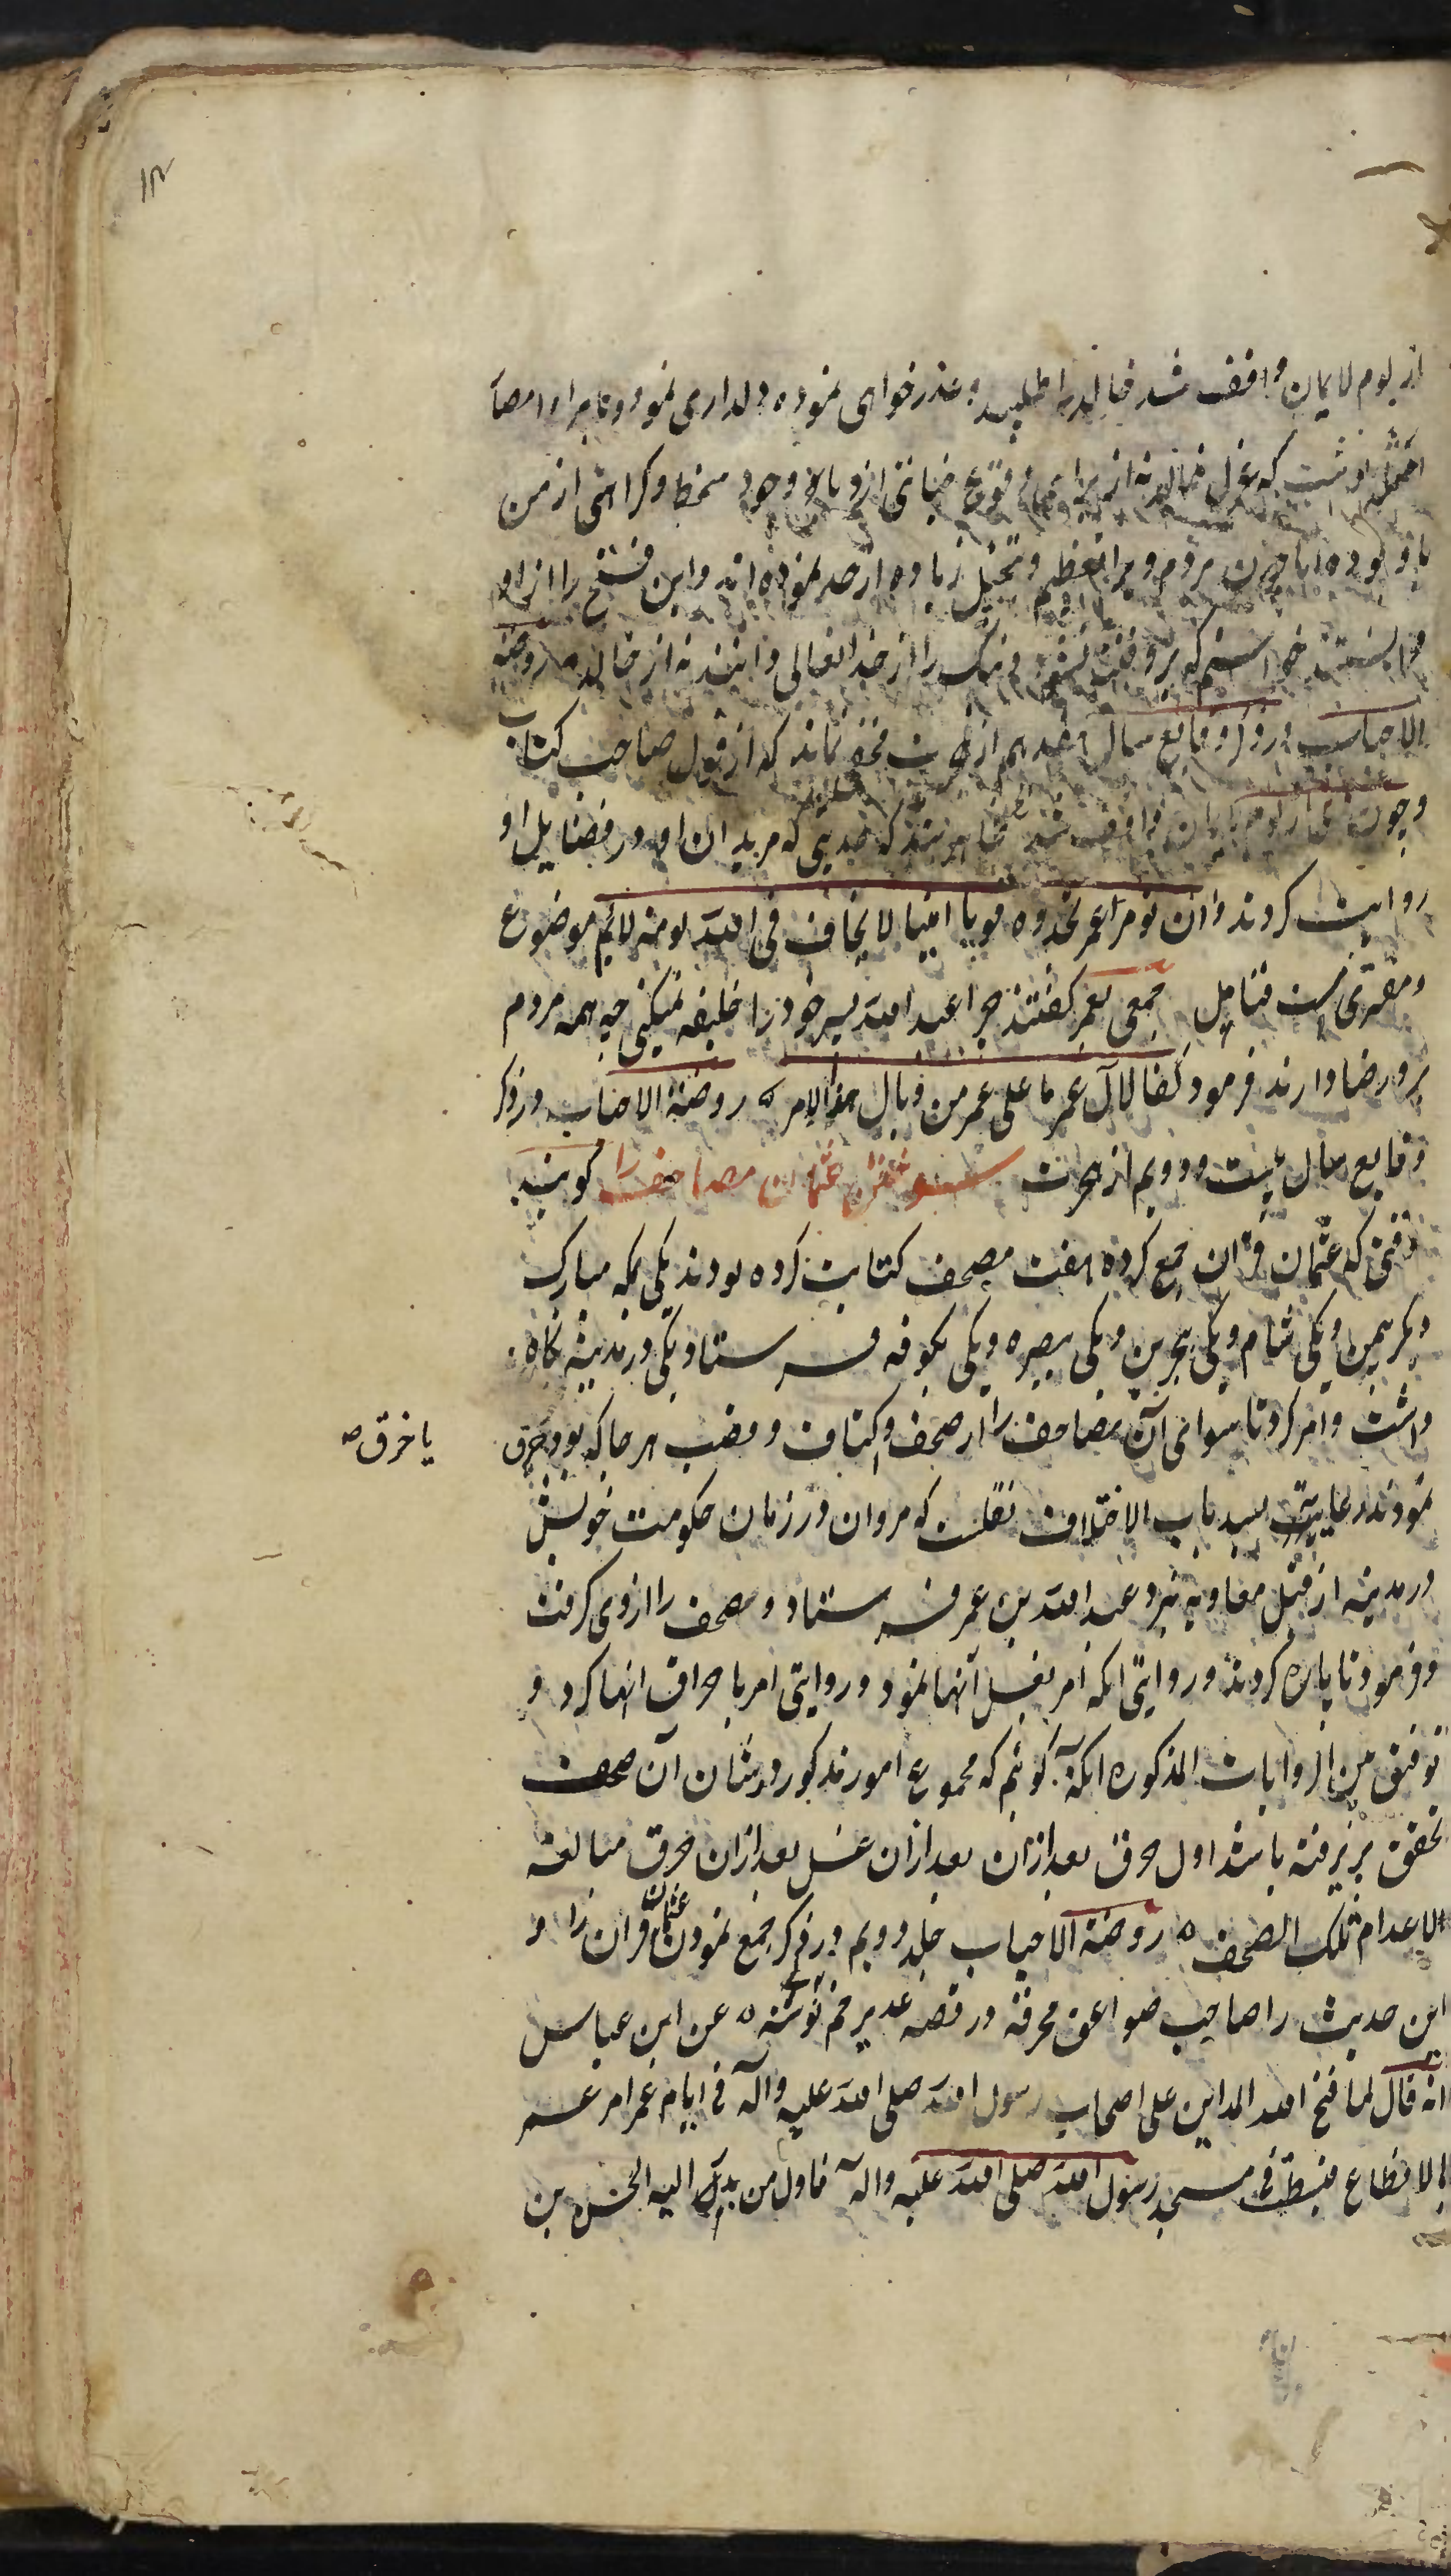 ۱۳
از لوم لایمان واقف شد خالد را طلبید و عذر خواهی نموده دلداری نمود و نامه را امصا
نوشت که عزل خالد نه از برای وقوع خیانتی ازو یا وجود سخط و کراهتی از من
با و بوده اما چون مردم ویرا تعظیم و تبجیل زیاده از حد نموده‌اند و این فتح را از او
میدانستند خواستم که بر وقف شوند و نیک را از خدا تعالی دانند نه از خالد روضة
الاحباب در ذکر وقایع سال هفدهم از هجرت مخفی نماند که از قول صاحب کتاب
و چون عمر از لوم لایمان واقف شد ظاهر شد که حدیثی که مریدان او در فضایل او
روایت کردند و ان تومرا عمر تجدوه قویا امینا لا یخاف فی الله لومة لائم موضوع
و مفتری ست فتامل جمعی بعمر گفتند چرا عبد الله پسر خود را خلیفه نمیکنی چه همه مردم
برو رضا دارند فرمود کفا لآل عمر ما علی عمر من وبال هذا الامر ه روضة الاحباب در ذکر
وقایع سال بیست و دویم از هجرت سوختن عثمان مصاحف را گویند
وقتی که عثمان قران جمع کرده هفت مصحف کتابت کرده بودند یکی بمکه مبارک
و یکی بیمن و یکی بشام و یکی ببحرین و یکی ببصره و یکی بکوفه فرستاد و یکی در مدینه نگاه
داشت و امر کرد تا سوای آن مصاحف را از صحف و اکتاف و قضب هر جا که بود حرق
یا خرق صه
نمودند رعایتی لسد باب الاختلاف نقلست که مروان در زمان حکومت خویش
در مدینه از قبل معاویه نزد عبد الله بن عمر فرستاد و مصحف را از وی گرفت
و فرمود تا پاره کردند و روایتی انکه امر بغسل آنها نمود و روایتی امر باحراق انها کرد و
توفیق بین الروایات المذکوره انکه گوئیم که مجموع امور مذکور در شان آن صحف
تحقق پذیرفته باشد اول حرق بعد ازان بعد ازان غسل بعد ازان خرق مبالغة
لاعدام تلک الصحف ه روضة الاحباب جلد دویم در ذکر جمع نمودن عثمان قران را و
این حدیث را صاحب صواعق محرقه در قصه غدیر خم نوشته ه عن ابن عباس
انه قال لما فتح الله المداین علی اصحاب رسول الله صلی الله علیه وآله فی ایام عمر امر عمر
بالانطاع فبسطت فی مسجد رسول الله صلی الله علیه واله فاول من بدر الیه الحسن بن